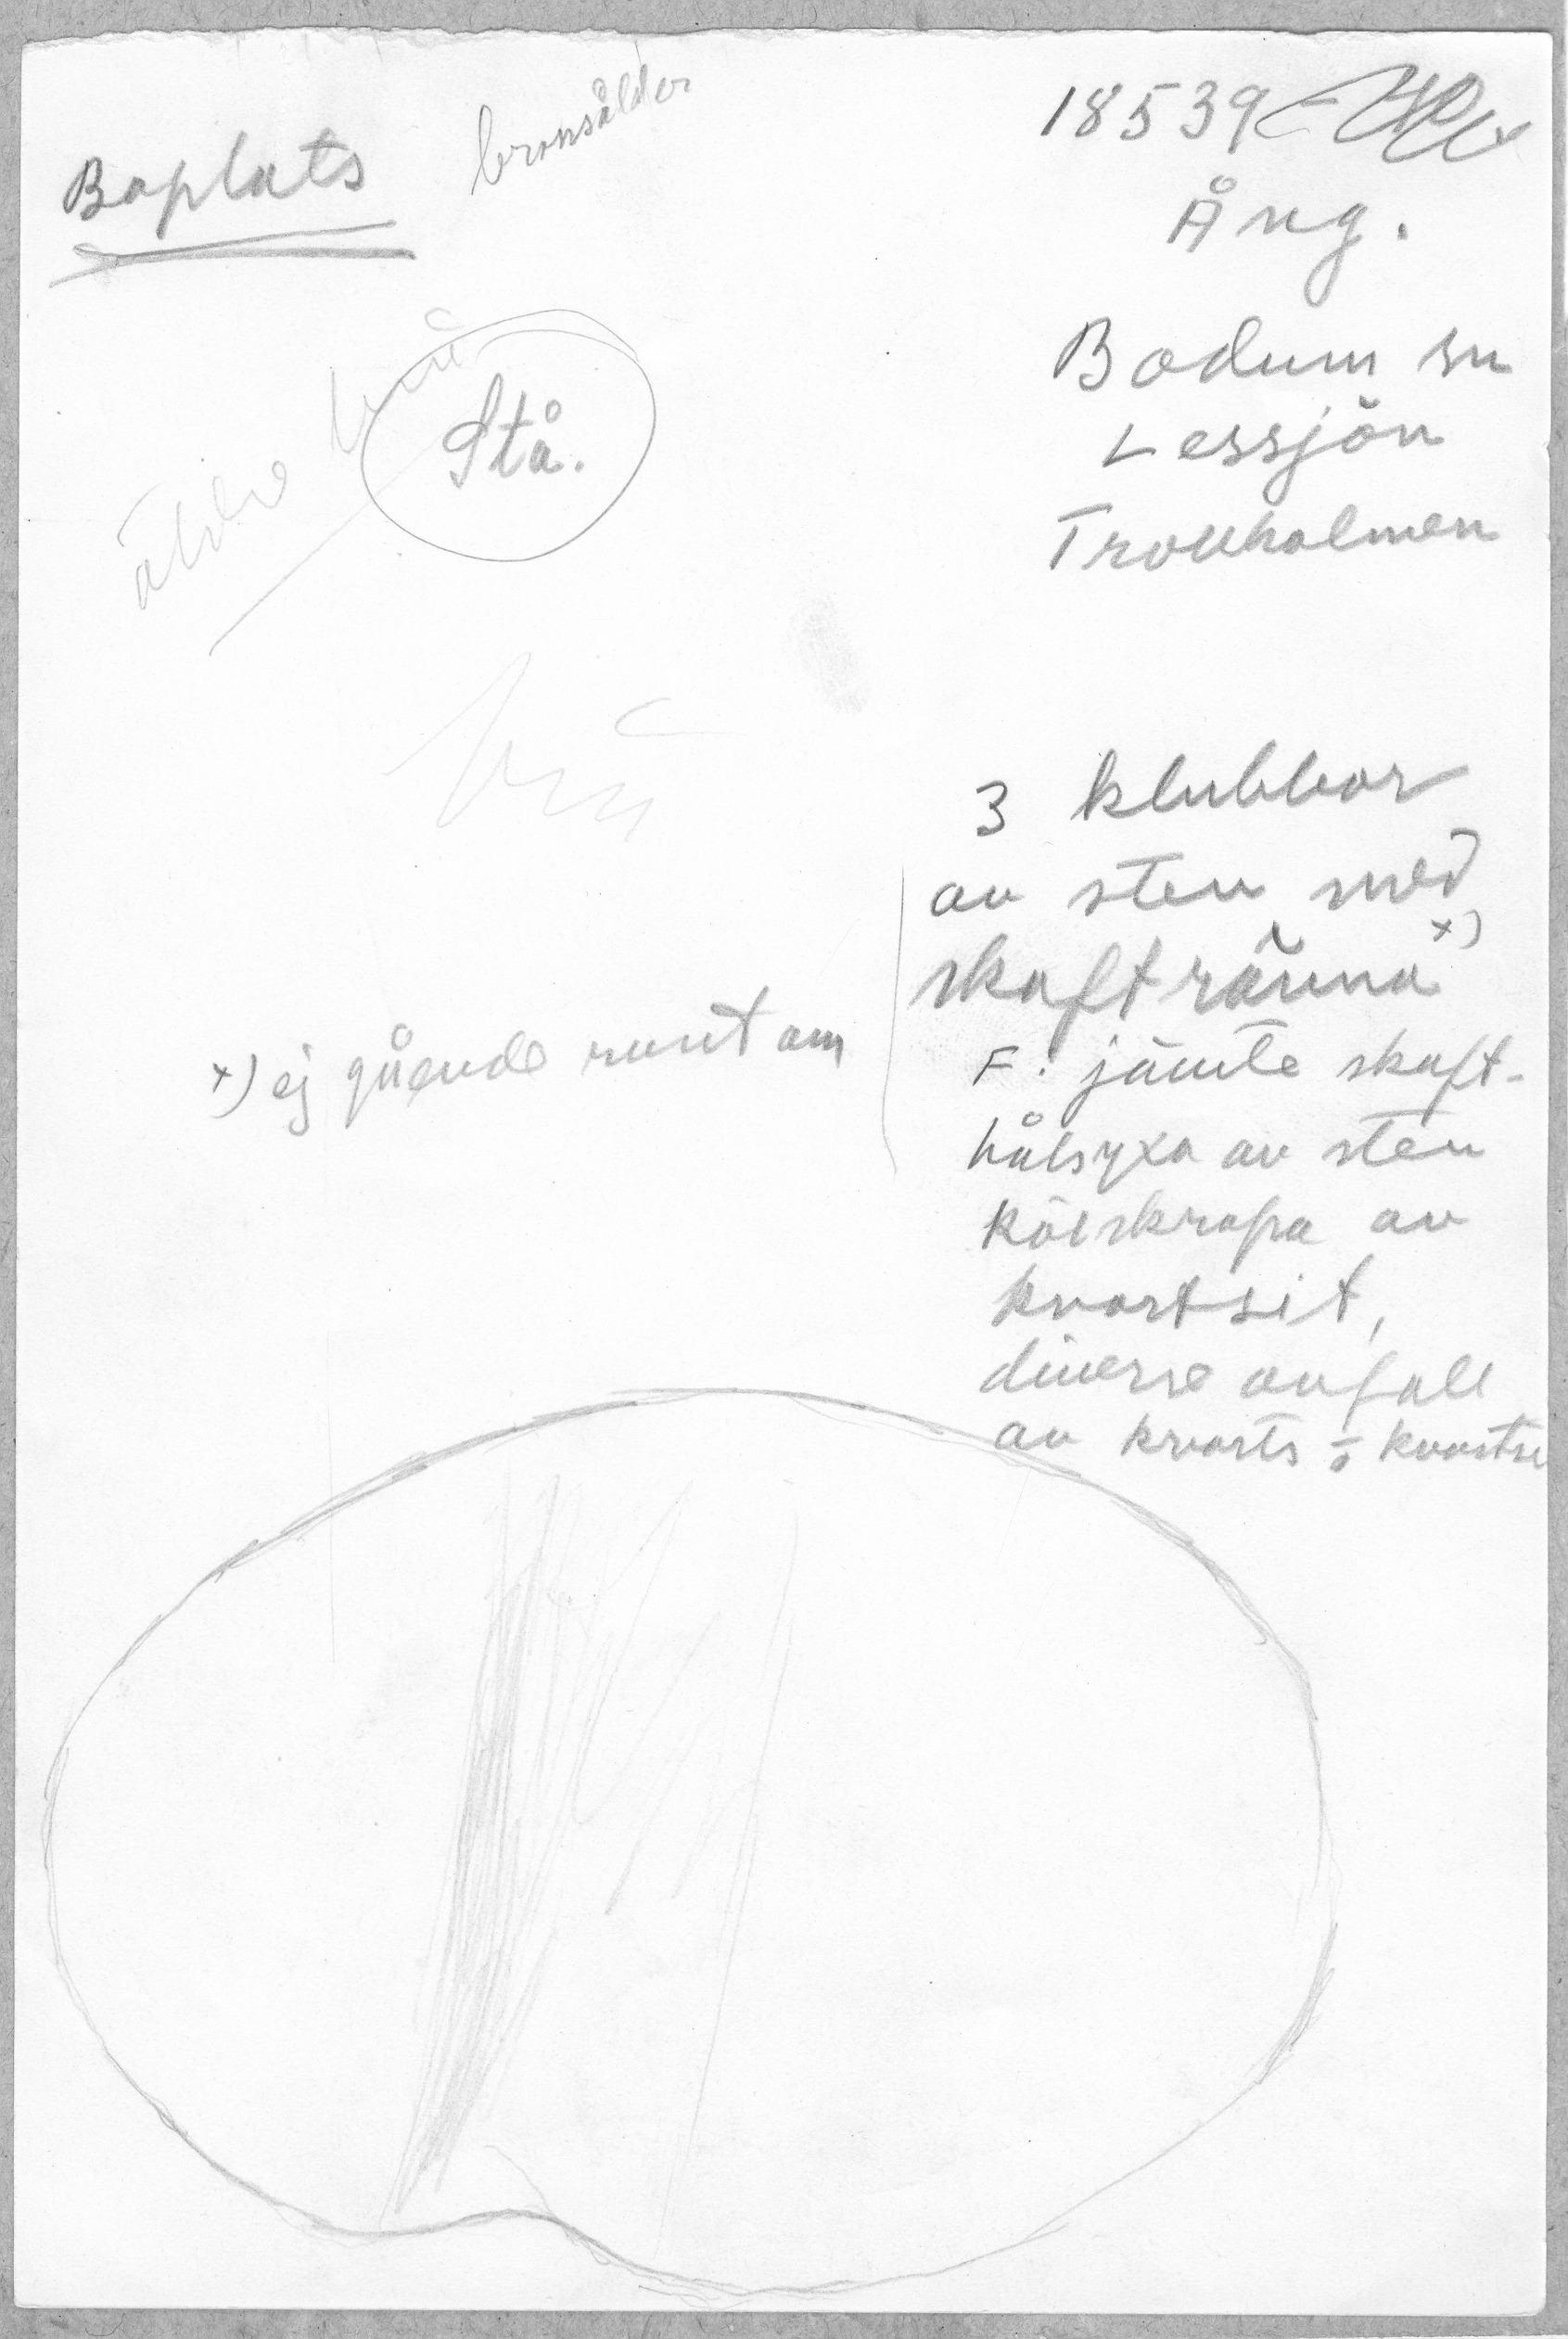 Boplats
bronsålder
18539
Ång.
Bodum sn
Lessjön
Trollholmen
äldre
Stå.
3 klubbor
av sten med
skaftränna x)
x) ej gående runt om
F: jämte skaft-
hålsyxa av sten
kölskrapa av
kvartsit,
diverse avfall
av kvarts o kvartsi